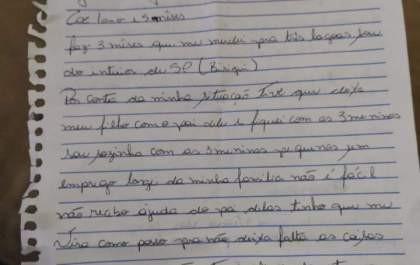 1 ano e 5 meses
faz 3 mises que me mudei pra três lagoas sou
do interior de SP (Birigui)
Por conta da minha situação tive que deixa
meu filho com o pai dele e fiquei com as 3 meninas
sou sozinha com as 3 meninas pequenas sem
emprego longe da minha familia não é fácil
não recebo ajuda do pai delas tenho que me
vira como posso pra não deixa falta as coisas